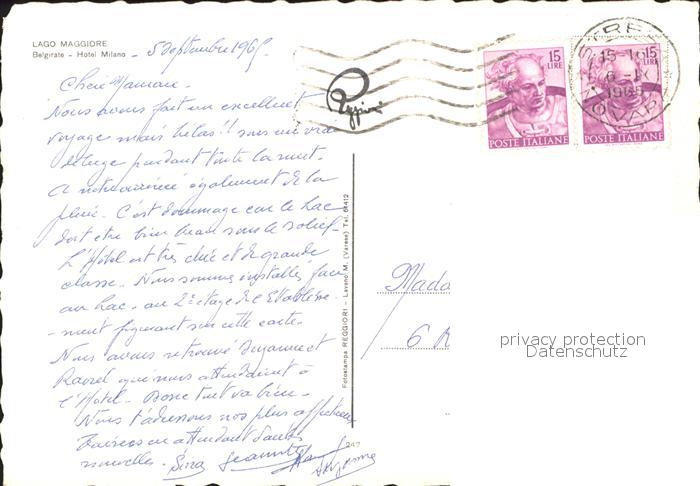 LAGO MAGGIORE
Belgirate - Hotel Milano
5 Septembre 1965
Chère Maman.
Nous avons fait un excellent
voyage mais hélas!! sous un vrai
déluge pendant toute la nuit.
A notre arrivée également de la
pluie. C'est dommage car le Lac
doit être bien beau sous le soleil.
L'Hôtel est très chic et de grande
classe. Nous sommes installés face
au Lac. au 2e étage de l'Etablisse-
-ment figurant sur cette carte.
Nous avons retrouvé Suzanne et
qui nous attendaient à
l'Hôtel. Donc tout va bien.
Nous t'adressons nos plus affectueux
baisers en attendant d'autres
nouvelles. Jeannette
Suzanne
Fotostampa REGGIORI - Laveno M. (Varese) Tel. 64412
247
Reggiori
15 LIRE
POSTE ITALIANE
15 LIRE
POSTE ITALIANE
STRESA
15-16
6-IX
1965
NOVARA
Mada
6 R
privacy protection
Datenschutz